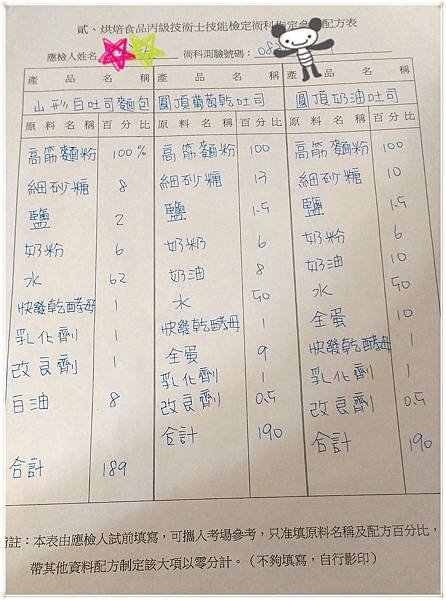 貳、烘焙食品丙級技術士技能檢定術科指定參 配方表
應檢人姓名 術科測驗號碼：08
產品名稱 產品名稱 產品名稱
山形白吐司麵包 圓頂葡萄乾吐司 圓頂奶油吐司
原料名稱 百分比 原料名稱 百分比 原料名稱 百分比
高筋麵粉 100% 高筋麵粉 100 高筋麵粉 100
細砂糖 8 細砂糖 13 細砂糖 10
鹽 2 鹽 1.5 鹽 1.5
奶粉 6 奶粉 6 奶粉 6
水 62 奶油 8 奶油 10
快發乾酵母 1 水 50 水 50
乳化劑 1 快發乾酵母 1 全蛋 10
改良劑 1 全蛋 9 快發乾酵母 1
白油 8 乳化劑 1 乳化劑 1
改良劑 0.5 改良劑 0.5
合計 189 合計 190 合計 190
註：本表由應檢人試前填寫，可攜入考場參考，只准填原料名稱及配方百分比，
帶其他資料配方制定該大項以零分計。（不夠填寫，自行影印）